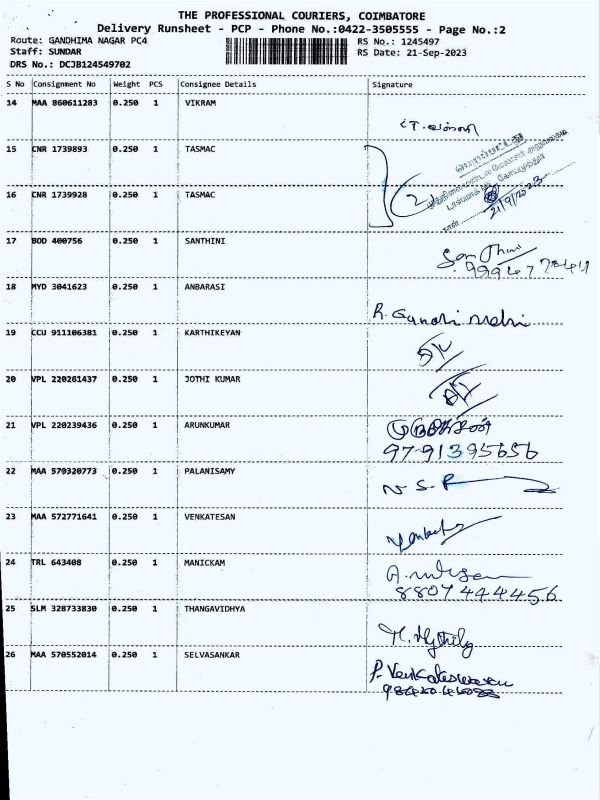 THE PROFESSIONAL COURIERS, COIMBATORE
Delivery Runsheet - PCP - Phone No.:0422-3505555 - Page No.:2
Route: GANDHIMA NAGAR PC4 RS No.: 1245497
Staff: SUNDAR RS Date: 21-Sep-2023
DRS No.: DCJB124549702
S No Consignment No Weight PCS Consignee Details Signature
14 MAA 860611283 0.250 1 VIKRAM
15 CNR 1739893 0.250 1 TASMAC
16 CNR 1739928 0.250 1 TASMAC
21/9/2023
17 BOD 400756 0.250 1 SANTHINI
SanThini
18 MYD 3041623 0.250 1 ANBARASI
R. Gandhi
19 CCU 911106381 0.250 1 KARTHIKEYAN
20 VPL 220261437 0.250 1 JOTHI KUMAR
21 VPL 220239436 0.250 1 ARUNKUMAR
9791395656
22 MAA 570320773 0.250 1 PALANISAMY
N.S.P
23 MAA 572771641 0.250 1 VENKATESAN
24 TRL 643408 0.250 1 MANICKAM
8807444456
25 SLM 328733830 0.250 1 THANGAVIDHYA
M. Mythily
26 MAA 570552014 0.250 1 SELVASANKAR
P. Venkateswaran